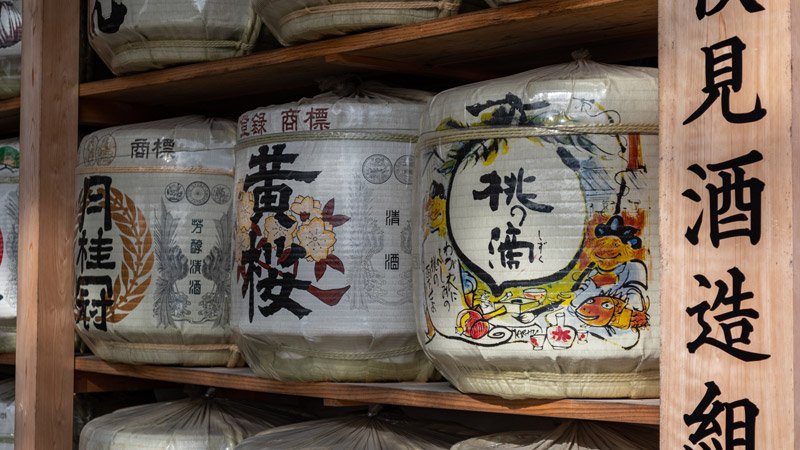 商標
月桂冠
芳醇清酒
登録 商標
黄桜
清酒
桃の滴
しずく
伏見酒造組